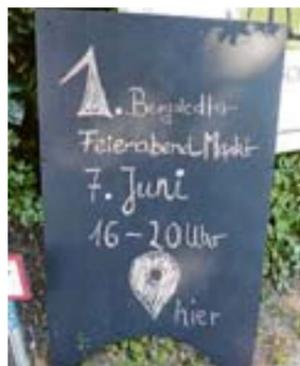 1. Bergstedter
Feierabend Markt
7. Juni
16-20 Uhr
hier